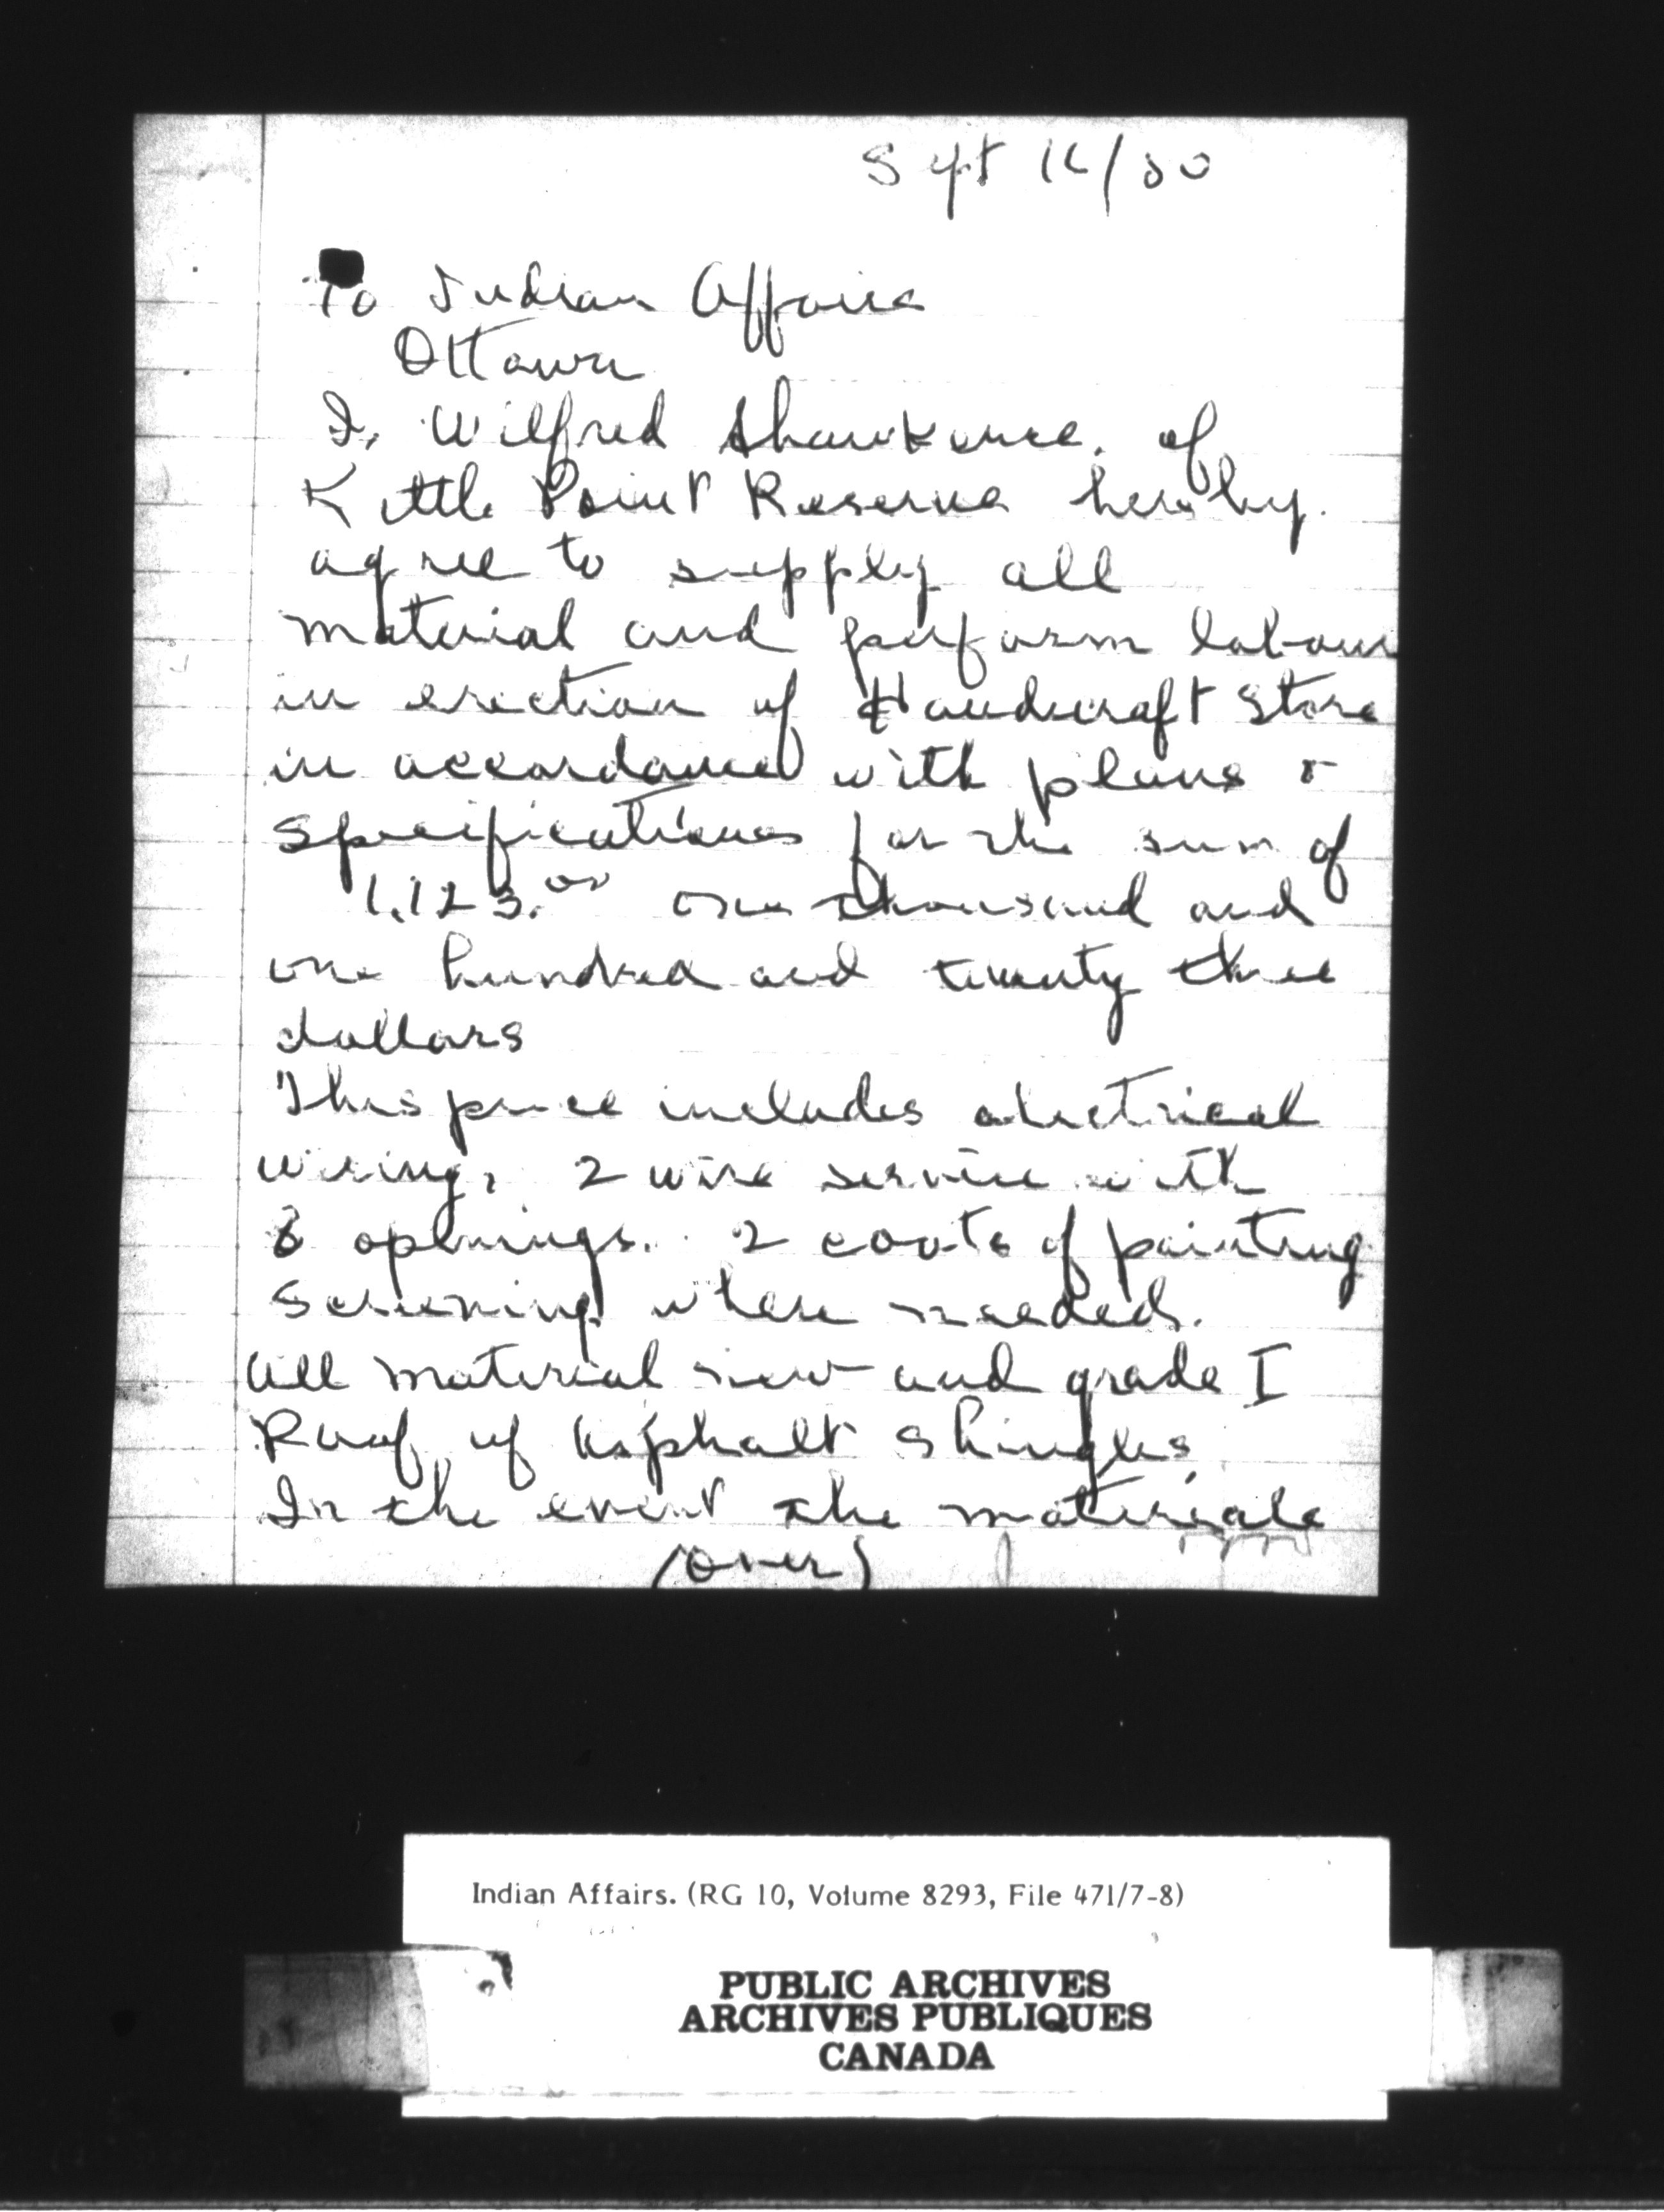 Sept 16/50
To Indian Affairs
Ottawa
I, Wilfred Shawkence, of
Kettle Point Reserve hereby
agree to supply all
material and perform labour
in erection of Handicraft Store
in accordance with plans &
Specifications for the sum of
1,123.00 one thousand and
one hundred and twenty three
dollars
This price includes electrical
wiring, 2 wire service with
openings. 2 coats of painting
Screening where needed.
All material new and grade I
Roof of Asphalt Shingles
In the event the materials
(over)
Indian Affairs. (RG 10, Volume 8293, File 471/7-8)
PUBLIC ARCHIVES
ARCHIVES PUBLIQUES
CANADA